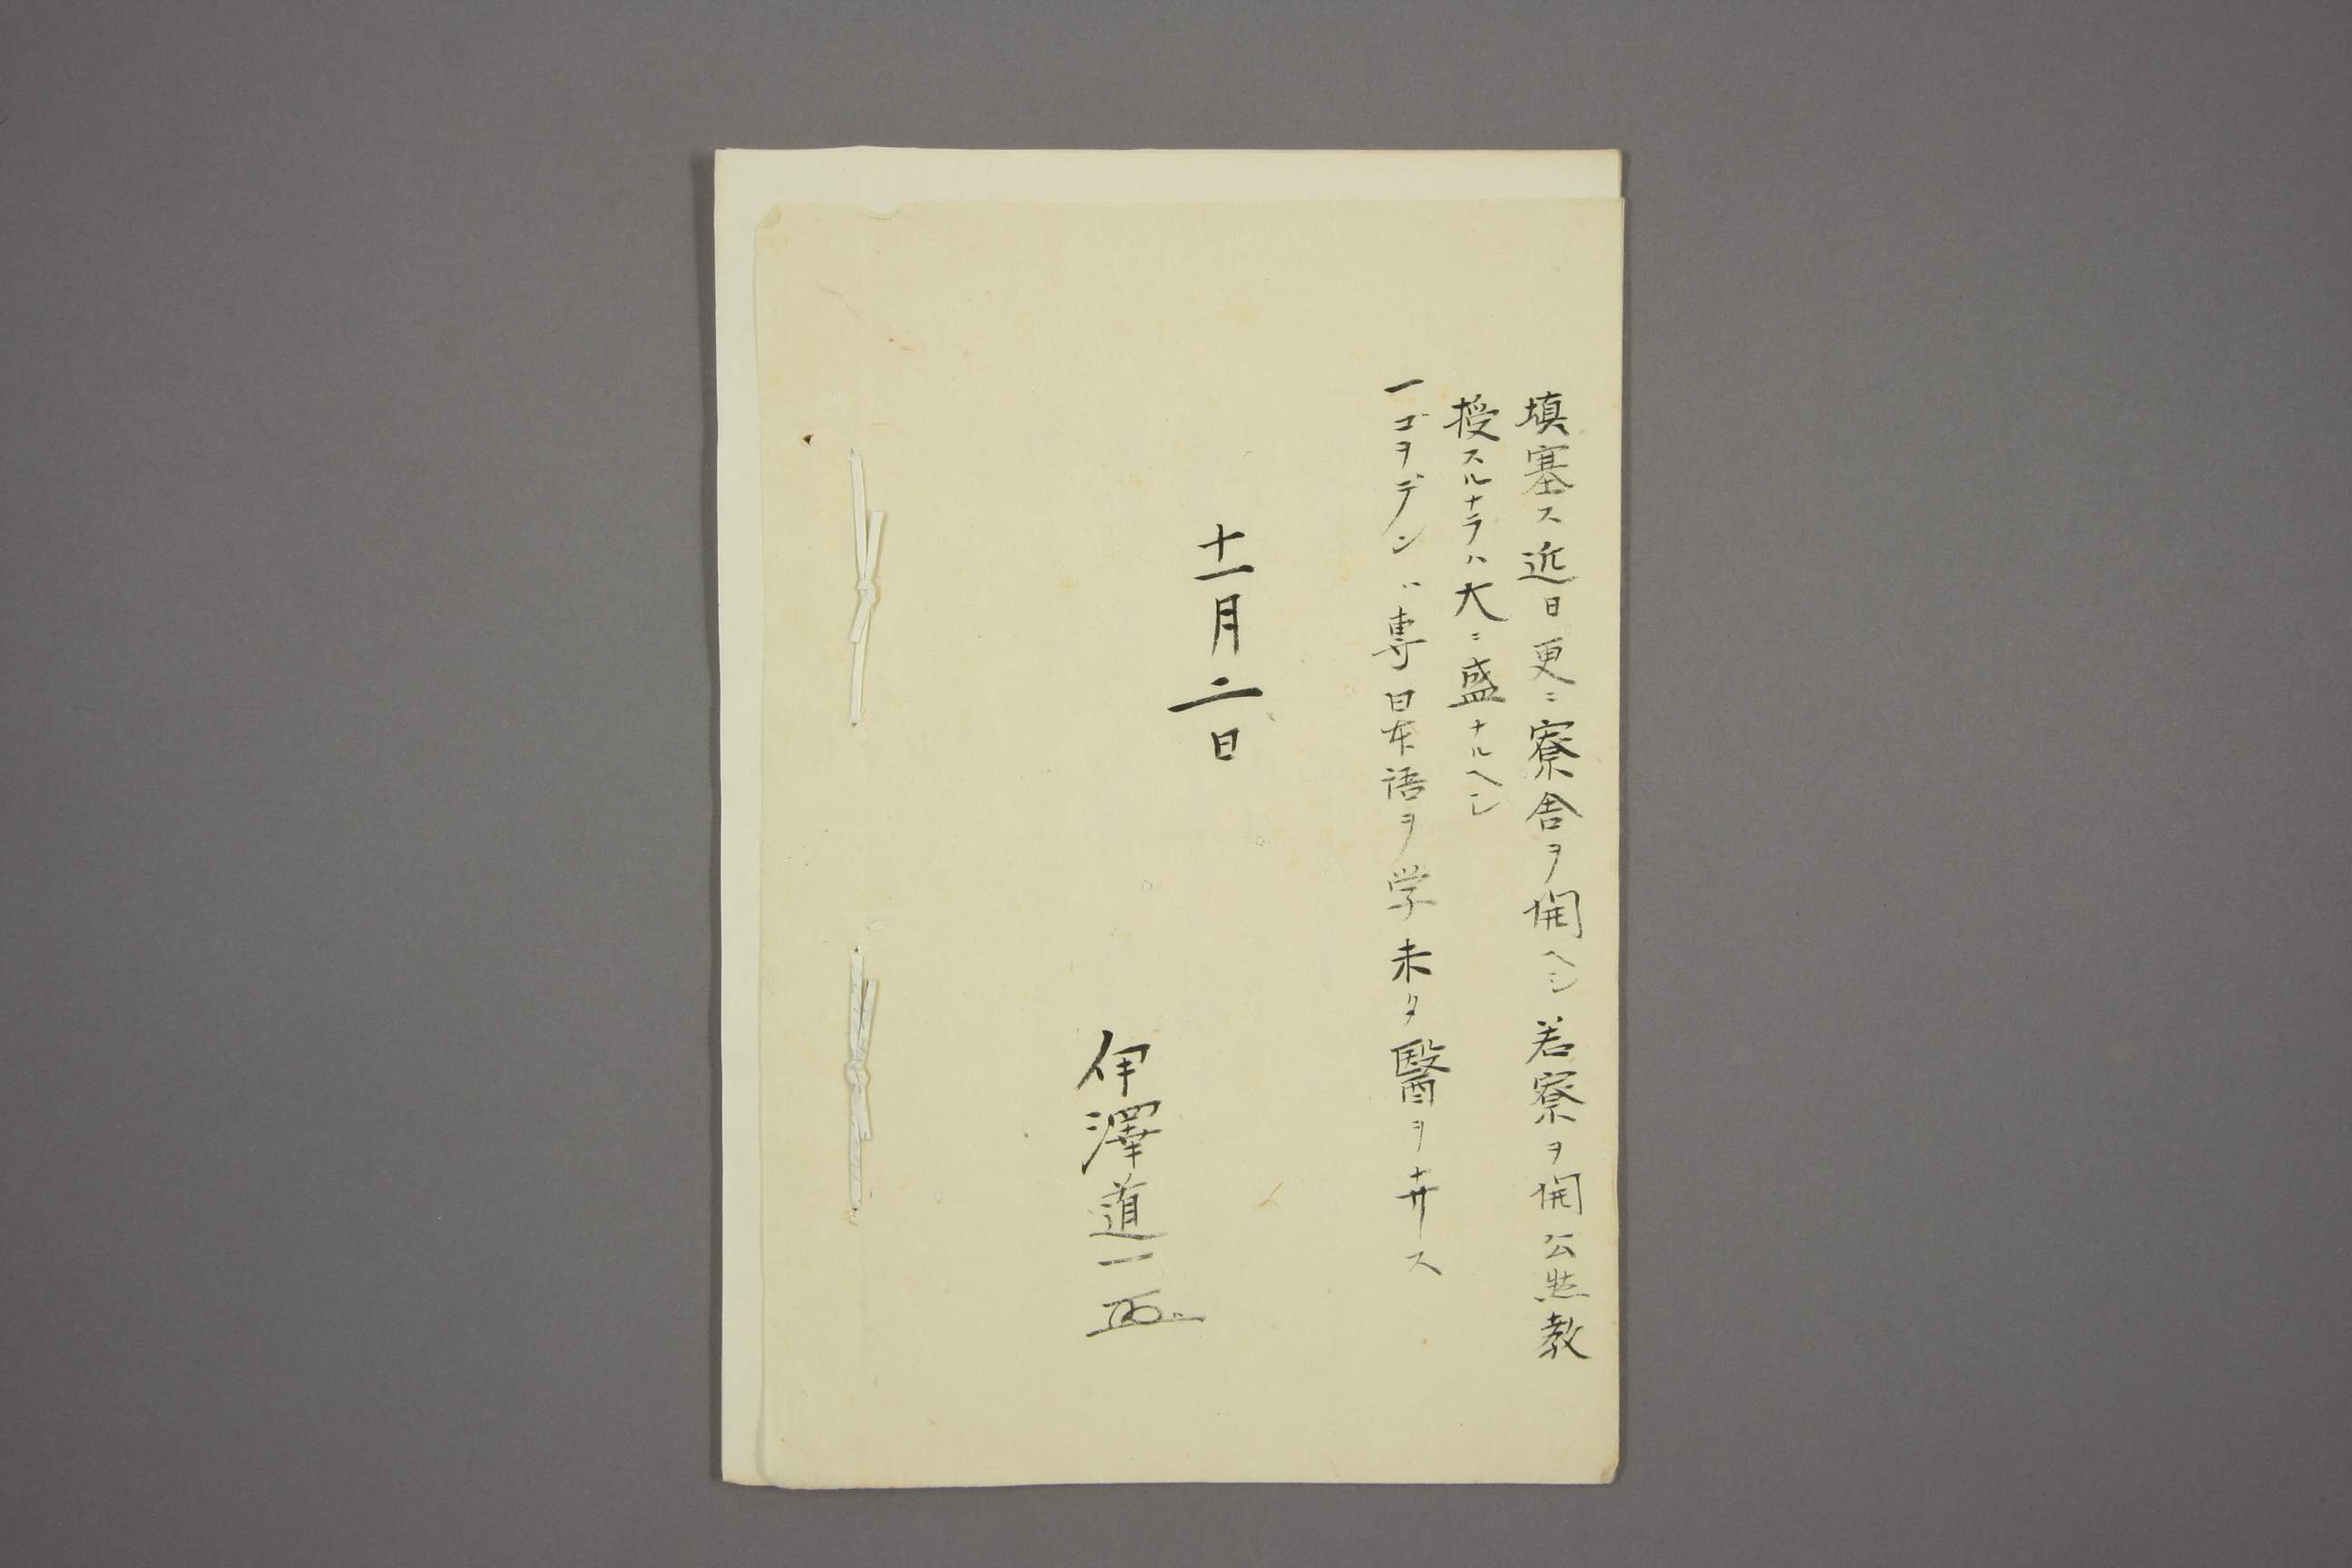 填塞ス近日更ニ寮舎ヲ開ヘシ若寮ヲ開公然教
授スルナラハ大ニ盛ナルヘシ
一ゴヲデンハ専日本語ヲ学未タ醫ヲ弁ス
十一月二日
伊澤道一